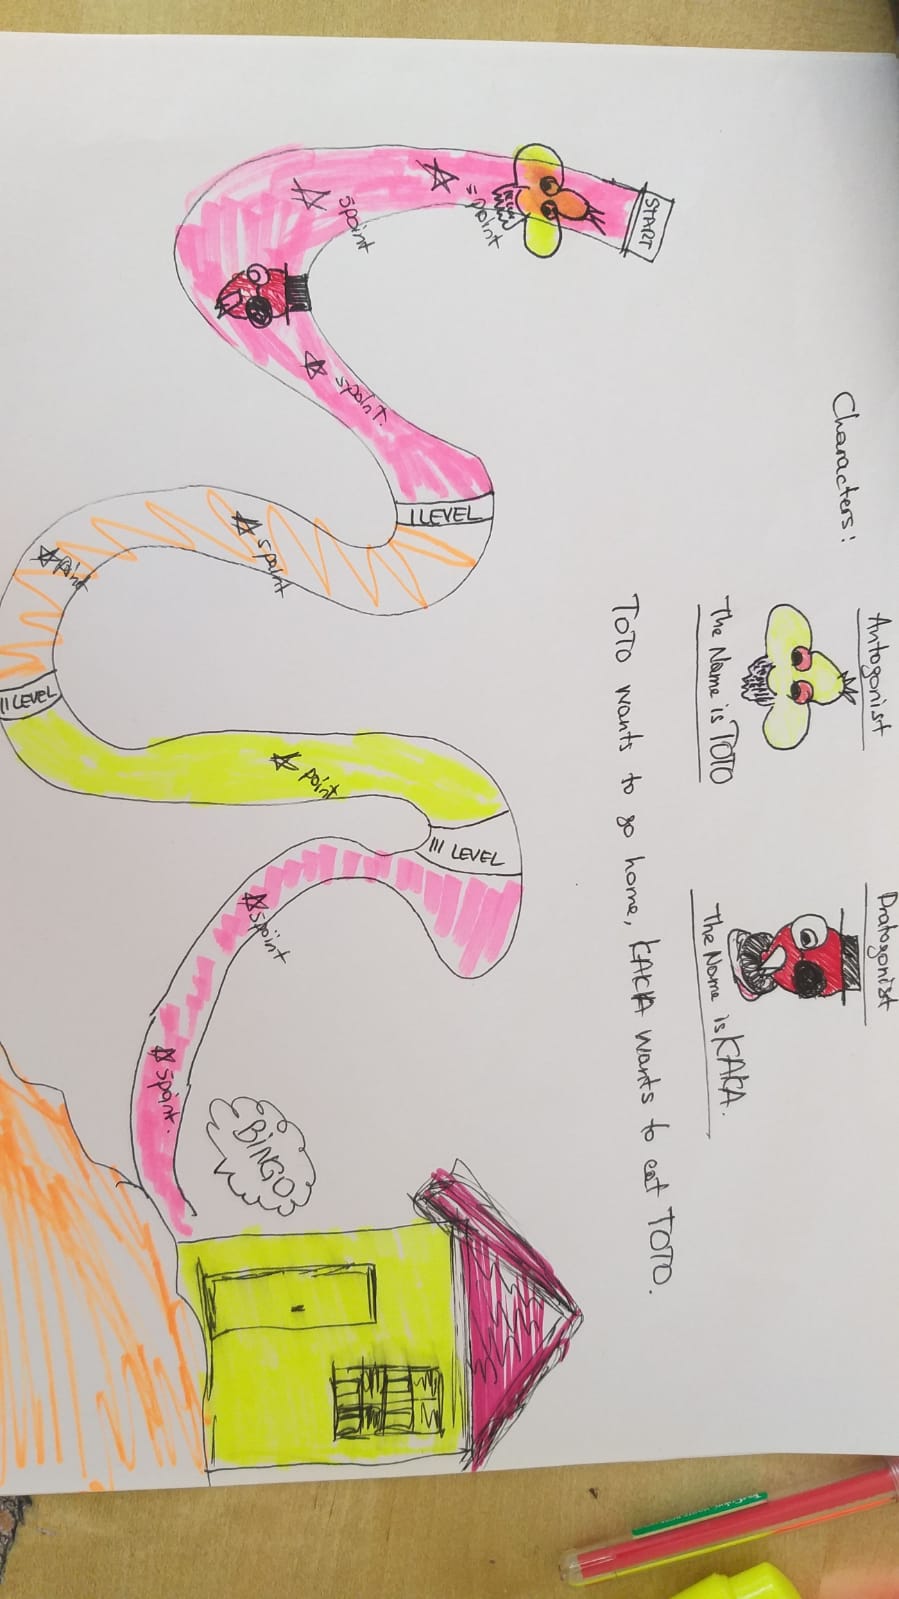 Antogonist
Pratogonist
Characters:
The Name is TOTO
The Name is KAKA.
TOTO wants to go home, KAKA wants to eat TOTO.
START
= point
5point
5point.
I LEVEL
5point
point
II LEVEL
point
III LEVEL
5point
5point.
BINGO